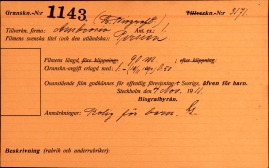 Gransknn.-Nr 1143. Tillverkn.-Nr 3171
Tillverkn. firma: Ambrosio Ant. ex.: 1
Filmens svenska titel (och den utländska):
Filmens längd, före klippning: 98 mtr. efter klippning:
Granskn.-avgift erlagd med:
Ovanstående film godkännes för offentlig förevisning i Sverige, även för barn.
Stockholm den 7 Nov. 1911.
Biografbyrån.
Anmärkningar: Rolig för barn. G.
Beskrivning (rubrik och underrubriker):